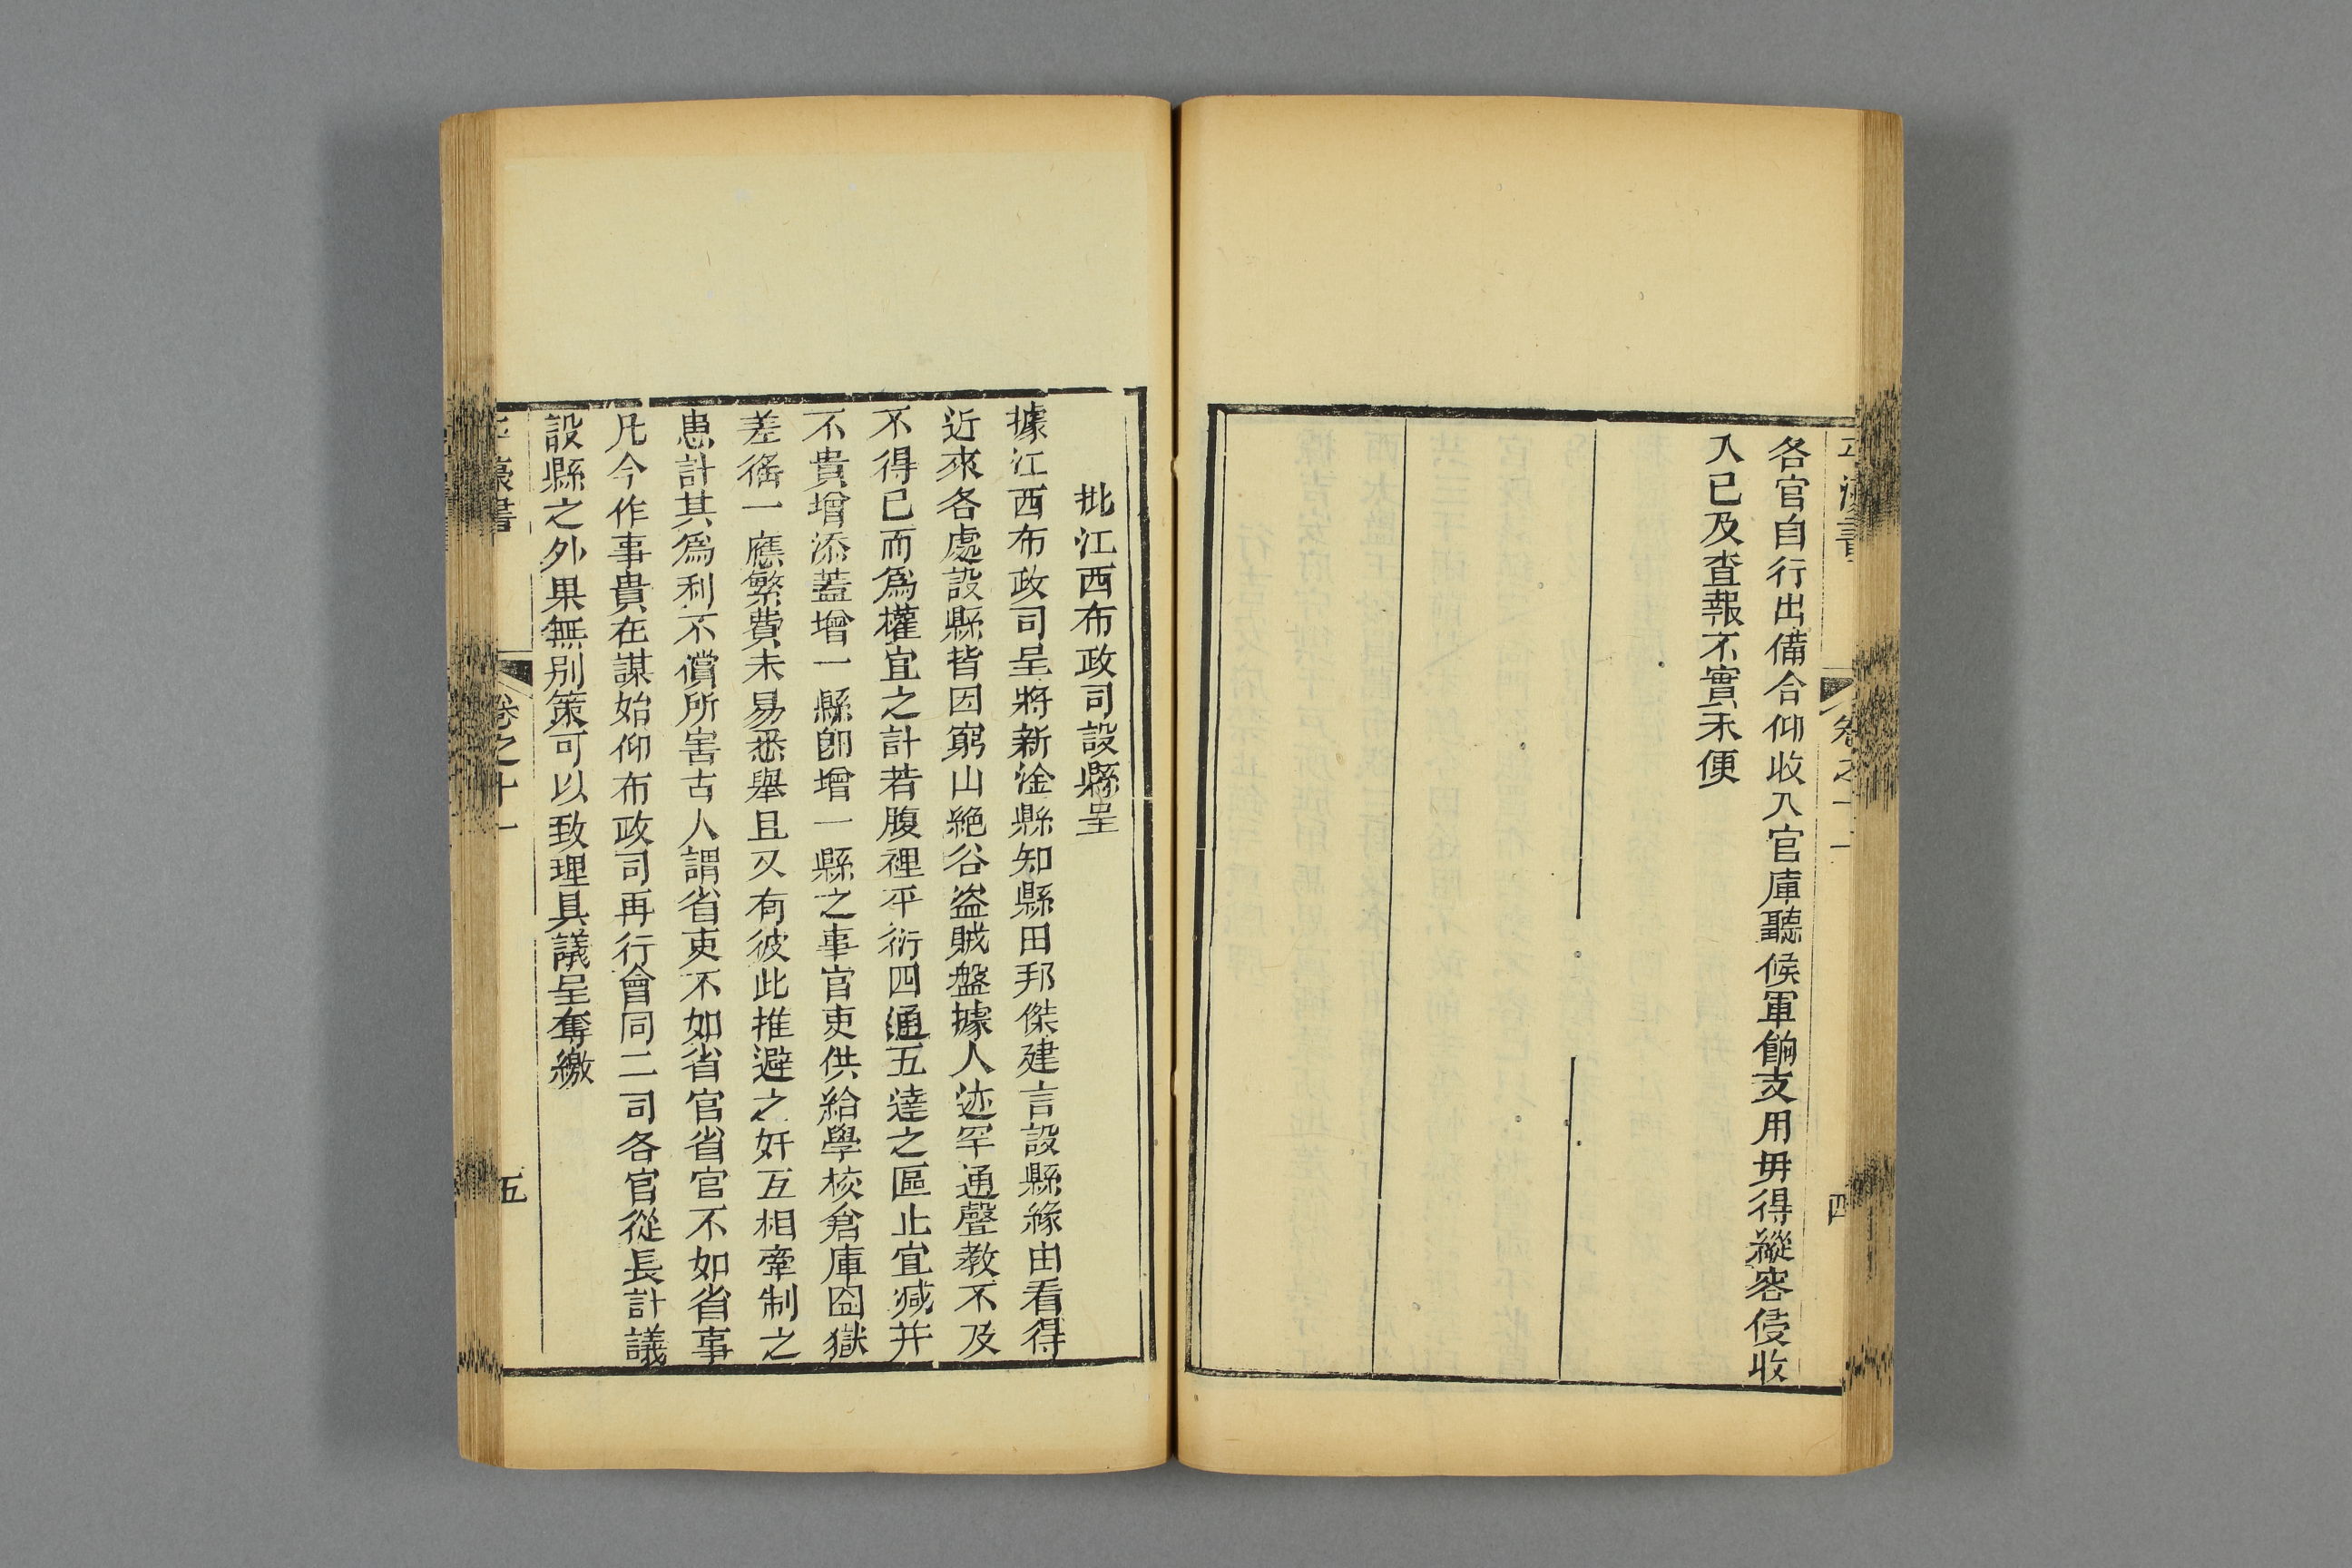 卷之十一
四
各官自行出備合仰收入官庫聽候軍餉支用毋得縱容侵收
入已及查報不實未便
批江西布政司設縣呈
據江西布政司呈將新淦縣知縣田邦傑建言設縣緣由看得
近來各處設縣皆因窮山絶谷盗賊盤據人迹罕通聲教不及
不得已而爲權宜之計若腹裡平衍四通五達之區止宜减并
不貴增添蓋增一縣卽增一縣之事官吏供給學校倉庫囹獄
差徭一應繁費未易悉舉且又有彼此推避之奸互相牽制之
患計其爲利不償所害古人謂省吏不如省官省官不如省事
凡今作事貴在謀始仰布政司再行會同二司各官從長計議
設縣之外果無别策可以致理具議呈奪繳
卷之十一
五